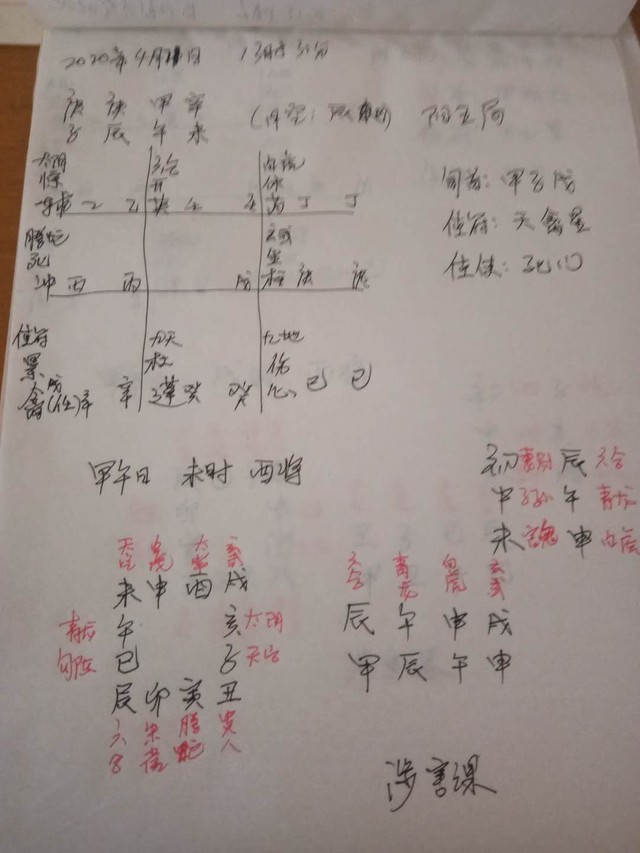 2020年4月 日 13时31分
庚 庚 甲 辛
子 辰 午 未
(月空: 阳五局
旬首: 甲子戊
值符: 天禽星
值使: 死门
太阴 六合
惊 开 休
乙 乙 丁 丁
腾蛇 玄武
死 生
冲 丙 丙 戊 柱 庚 庚
值符 九天 九地
景 杜 伤
禽 戊 辛 癸 癸 心 己 己
甲午日 未时 酉将
初 辰 六合
中 子孙 午 青龙
末 鬼 申
天空 白虎 太常 玄武
未 申 酉 戌
青龙 午 亥 太阴
勾陈 巳 子 天后
辰 卯 寅 丑
六合 朱雀 腾蛇 贵人
六合 青龙 白虎 玄武
辰 午 申 戌
甲 辰 午 申
涉害课